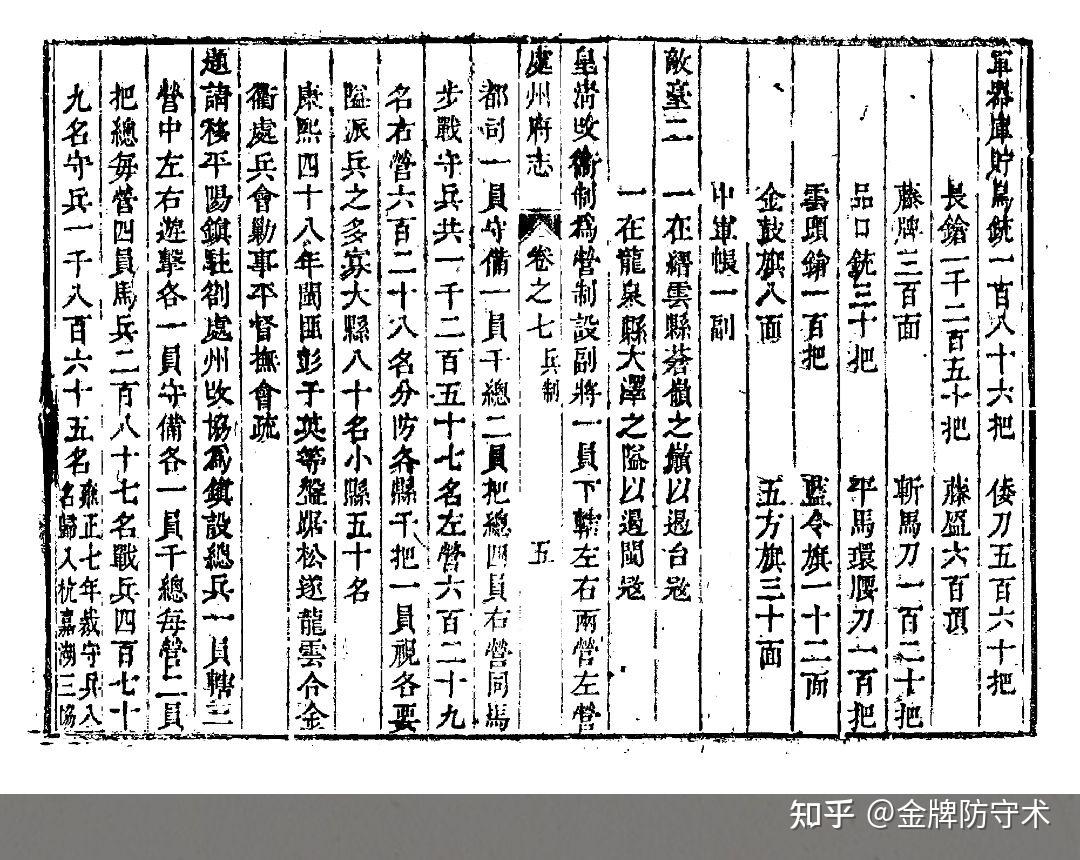 軍器庫貯鳥銃一百八十六把 倭刀五百六十把
長鎗一千二百五十把 藤盔六百頂
藤牌三百面 斬馬刀一百二十把
品口銃三十把 平馬環腰刀一百把
雲頭鎗一百把 藍令旗一十二面
金鼓旗八面 五方旗三十面
中軍帳一副
敵臺二 一在縉雲縣蒼嶺之巔以遏台寇
一在龍泉縣大澤之隘以遏閩寇
皇淸改衞制爲營制設副將一員下轄左右兩營左營
處州府志 卷之七 兵制 五
都司一員守備一員千總二員把總四員右營同馬
步戰守兵共一千二百五十七名左營六百二十九
名右營六百二十八名分防各縣千把一員視各要
隘派兵之多寡大縣八十名小縣五十名
康熙四十八年閩匪彭子英等盤踞松遂龍雲合金
衢處兵會勦事平督撫會疏
題請移平陽鎮駐劄處州改協爲鎮設總兵一員轄三
營中左右遊擊各一員守備各一員千總每營二員
把總每營四員馬兵二百八十七名戰兵四百七十
九名守兵一千八百六十五名 雍正七年裁守兵八
名歸入杭嘉湖三協
知乎 @金牌防守术